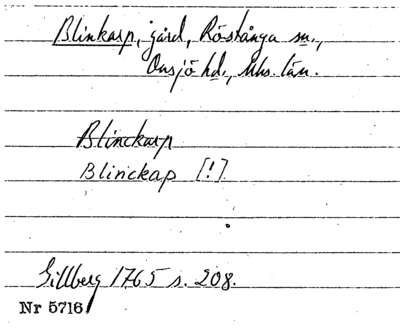 Blinkarp, gård, Röstånga sn.,
Onsjö hd., Mhs. län.
Blinckarp
Blinckap [!]
Gillberg 1765 s. 208.
Nr 5716